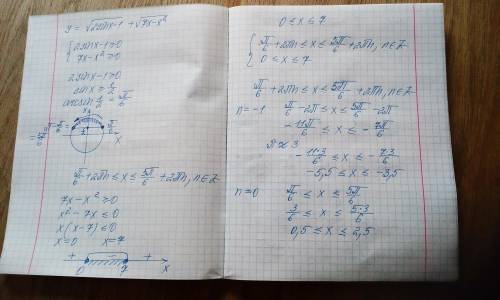 y = √2sinx-1 + √7x-x²
{ 2sinx-1≥0
7x-x²≥0
2sinx-1≥0
sinx≥1/2
arcsin 1/2 = π/6
x
π/6 + 2πn ≤ x ≤ 5π/6 + 2πn, n∈Z
7x-x²≥0
x²-7x≤0
x(x-7)≤0
x=0 x=7
+ - +
0 7 x
0≤x≤7
{ π/6 + 2πn ≤ x ≤ 5π/6 + 2πn, n∈Z
0≤x≤7
π/6 + 2πn ≤ x ≤ 5π/6 + 2πn, n∈Z
n=-1 π/6 - 2π ≤ x ≤ 5π/6 - 2π
-11π/6 ≤ x ≤ -7π/6
π≈3
-11·3/6 ≤ x ≤ -7·3/6
-5,5 ≤ x ≤ -3,5
n=0 π/6 ≤ x ≤ 5π/6
3/6 ≤ x ≤ 5·3/6
0,5 ≤ x ≤ 2,5